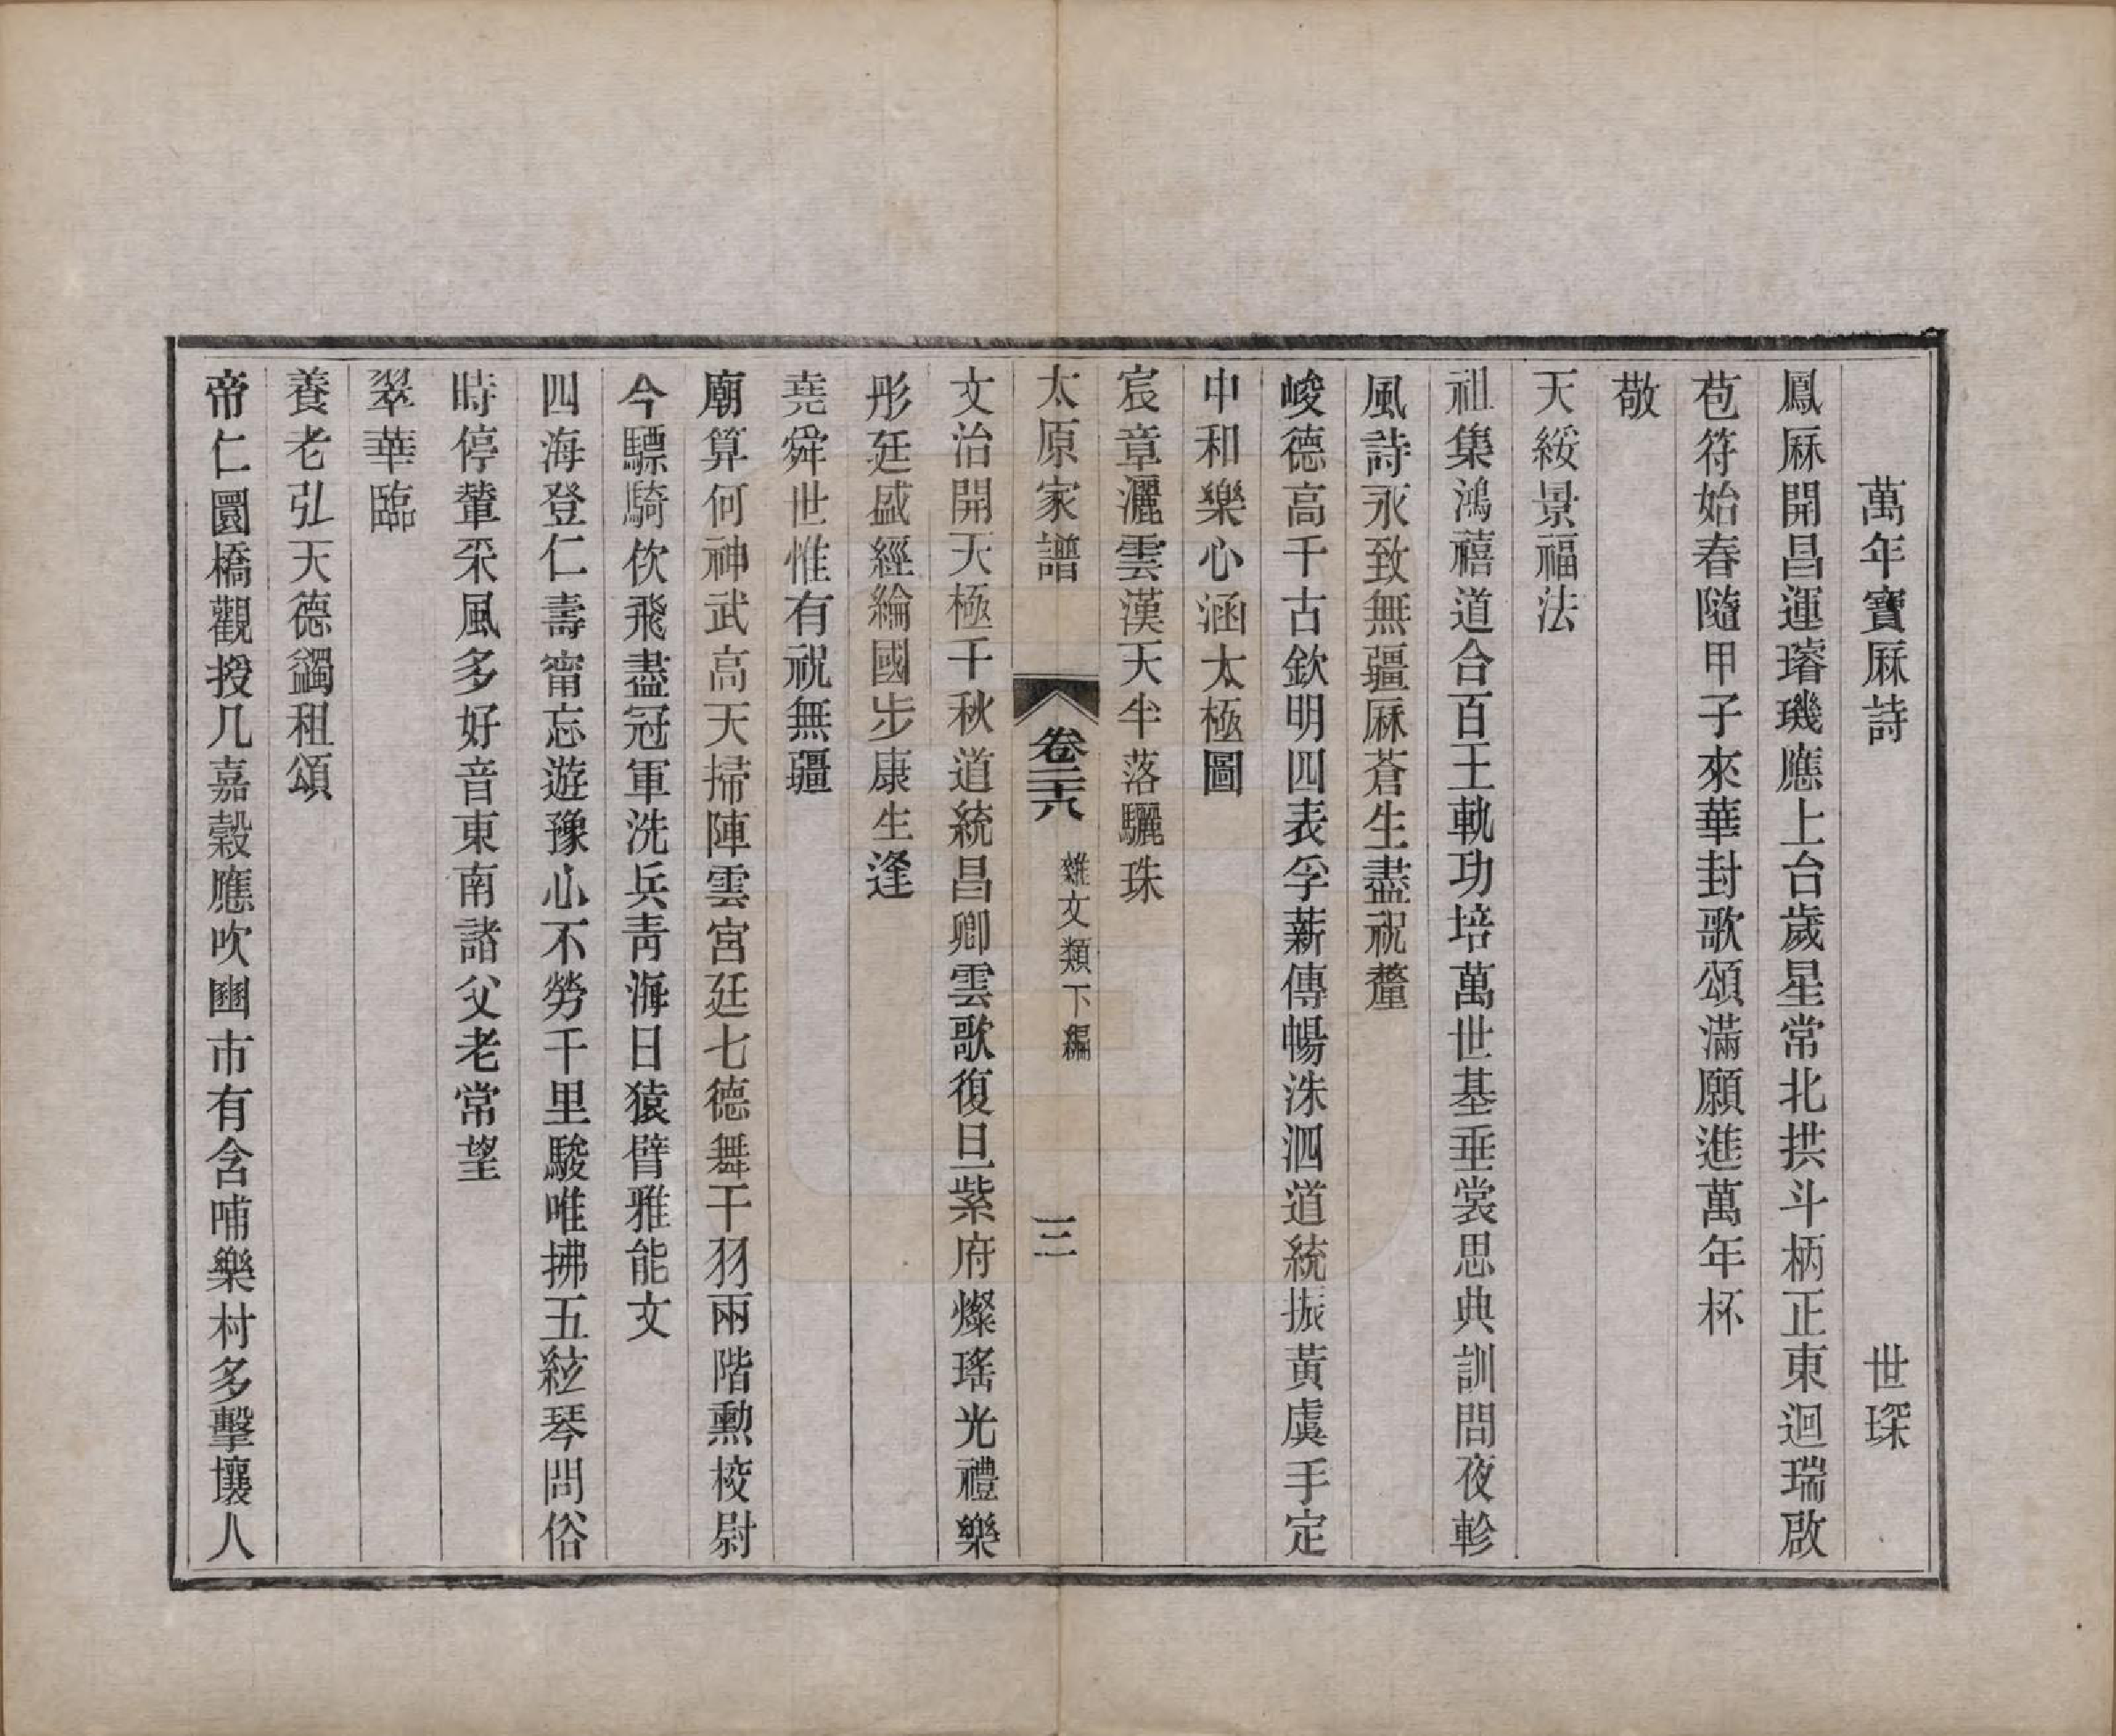 萬年寶厤詩　世琛
鳳厤開昌運璿璣應上台歲星常北拱斗柄正東迴瑞啟
苞符始春隨甲子來華封歌頌滿願進萬年杯
敬
天綏景福法
祖集鴻禧道合百王軌功培萬世基垂裳思典訓問夜軫
風詩永致無疆厤蒼生盡祝釐
峻德高千古欽明四表孚薪傳暢洙泗道統振黃虞手定
中和樂心涵太極圖
宸章灑雲漢天半落驪珠
太原家譜　卷二十八　雜文類下編　三
文治開天極千秋道統昌卿雲歌復旦紫府燦瑤光禮樂
彤廷盛經綸國步康生逢
堯舜世惟有祝無疆
廟算何神武高天掃陣雲宮廷七德舞干羽兩階勳校尉
今驃騎佽飛盡冠軍洗兵靑海日猿臂雅能文
四海登仁壽甯忘遊豫心不勞千里駿唯拂五絃琴問俗
時停輦采風多好音東南諸父老常望
翠華臨
養老弘天德蠲租頌
帝仁圜橋觀授几嘉穀應吹豳市有含哺樂村多擊壤人